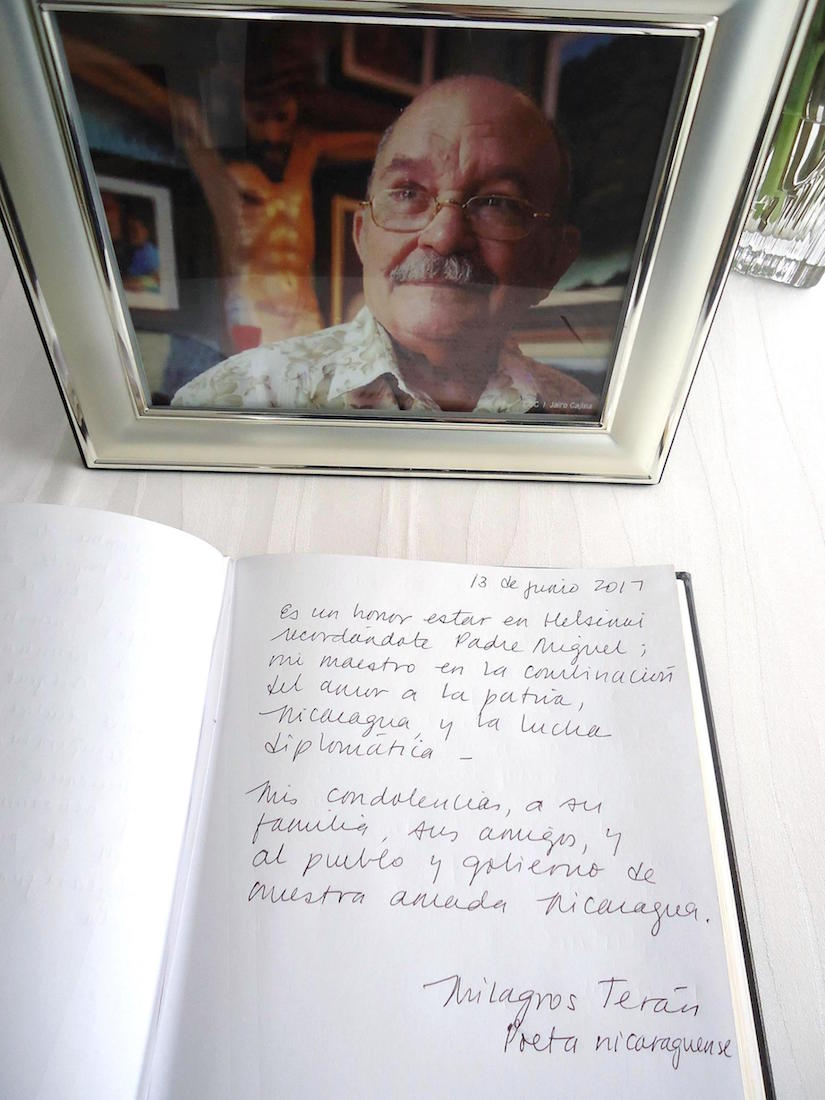 Jairo Cajina
13 de junio 2017
Es un honor estar en Helsinki
recordándote Padre Miguel;
mi maestro en la combinación
del amor a la patria,
Nicaragua, y la lucha
diplomática –
Mis condolencias, a su
familia, sus amigos, y
al pueblo y gobierno de
nuestra amada Nicaragua.
Milagros Terán
Poeta nicaraguense